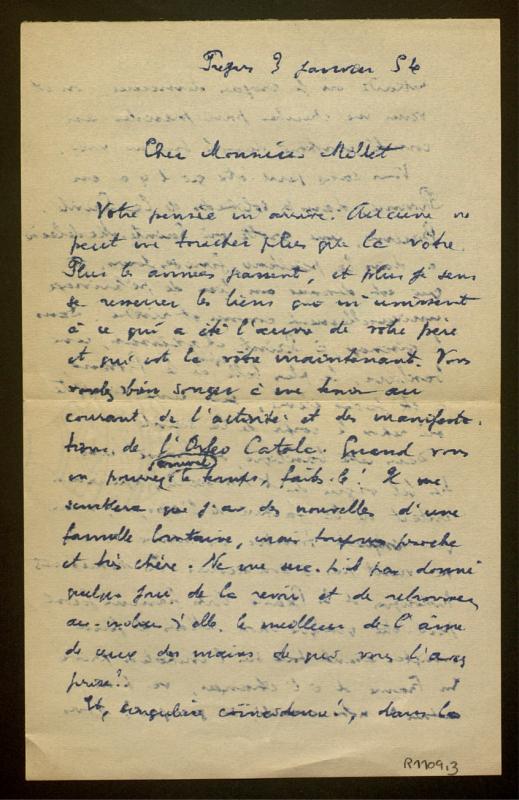 3 Janvier 54
Cher Monsieur Millet
Votre pensée m'arrive. Aucune ne
peut me toucher plus que la vôtre.
Plus les années passent, et plus je sens
se resserrer les liens qui m'unissent
à ce qui a été l'œuvre de votre père
et qui est la vôtre maintenant. Vous
voulez bien songer à me tenir au
courant de l'activité et des manifesta-
tions de l'Orfeo Catala. Quand vous
en pouvez trouver le temps, faites-le! Il me
semblera que j'ai des nouvelles d'une
famille lointaine, mais toujours proche
et très chère. Ne me sera-t-il pas donné
quelque jour de la revoir et de retrouver
au milieu d'elle le meilleur de l'âme
de ceux des mains de qui vous l'avez
prise?
Et, singulière coïncidence, dans la
R1109,3